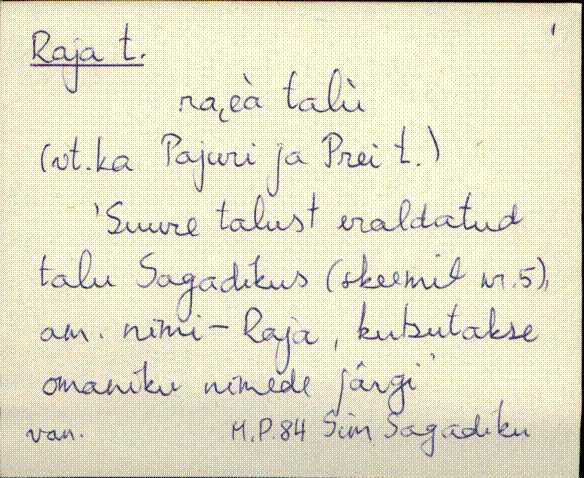 Raja t.
ra,eà talù
(vt. ka Pajuri ja Prei t.)
'Suure talust eraldatud
talu Sagadikus (skeemil nr. 5),
am. nimi - Raja, kutsutakse
omaniku nimede järgi'
van. M.P. 84 Sim Sagadiku